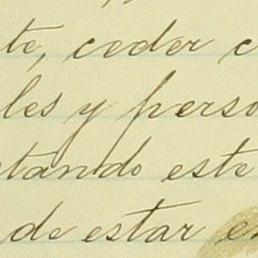 te, ceder c
les y perso
tando este
de estar en